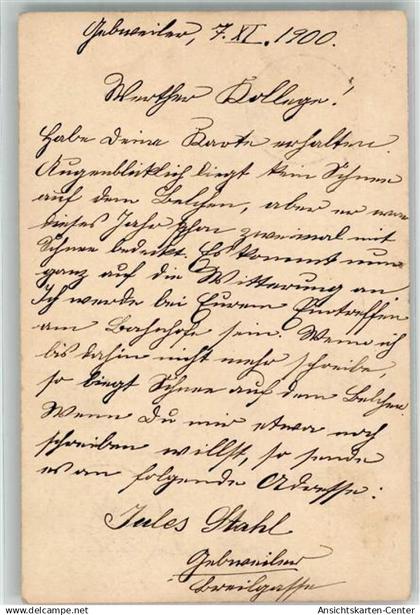 Gebweiler, 7. XI. 1900.
Werther Kollege!
Habe Deine Karte erhalten.
Augenblicklich liegt kein Schnee
auf dem Belchen, aber er war
dieses Jahr schon zweimal mit
Schnee bedeckt. Es kommt nun
ganz auf die Witterung an.
Ich werde bei Eurem Eintreffen
am Bahnhofe sein. Wenn ich
bis dahin nicht mehr schreibe,
so liegt Schnee auf dem Belchen.
Wenn Du mir etwa noch
schreiben willst, so sende
es an folgende Adresse:
Jules Stahl
Gebweiler
Breilgasse
Ansichtskarten-Center